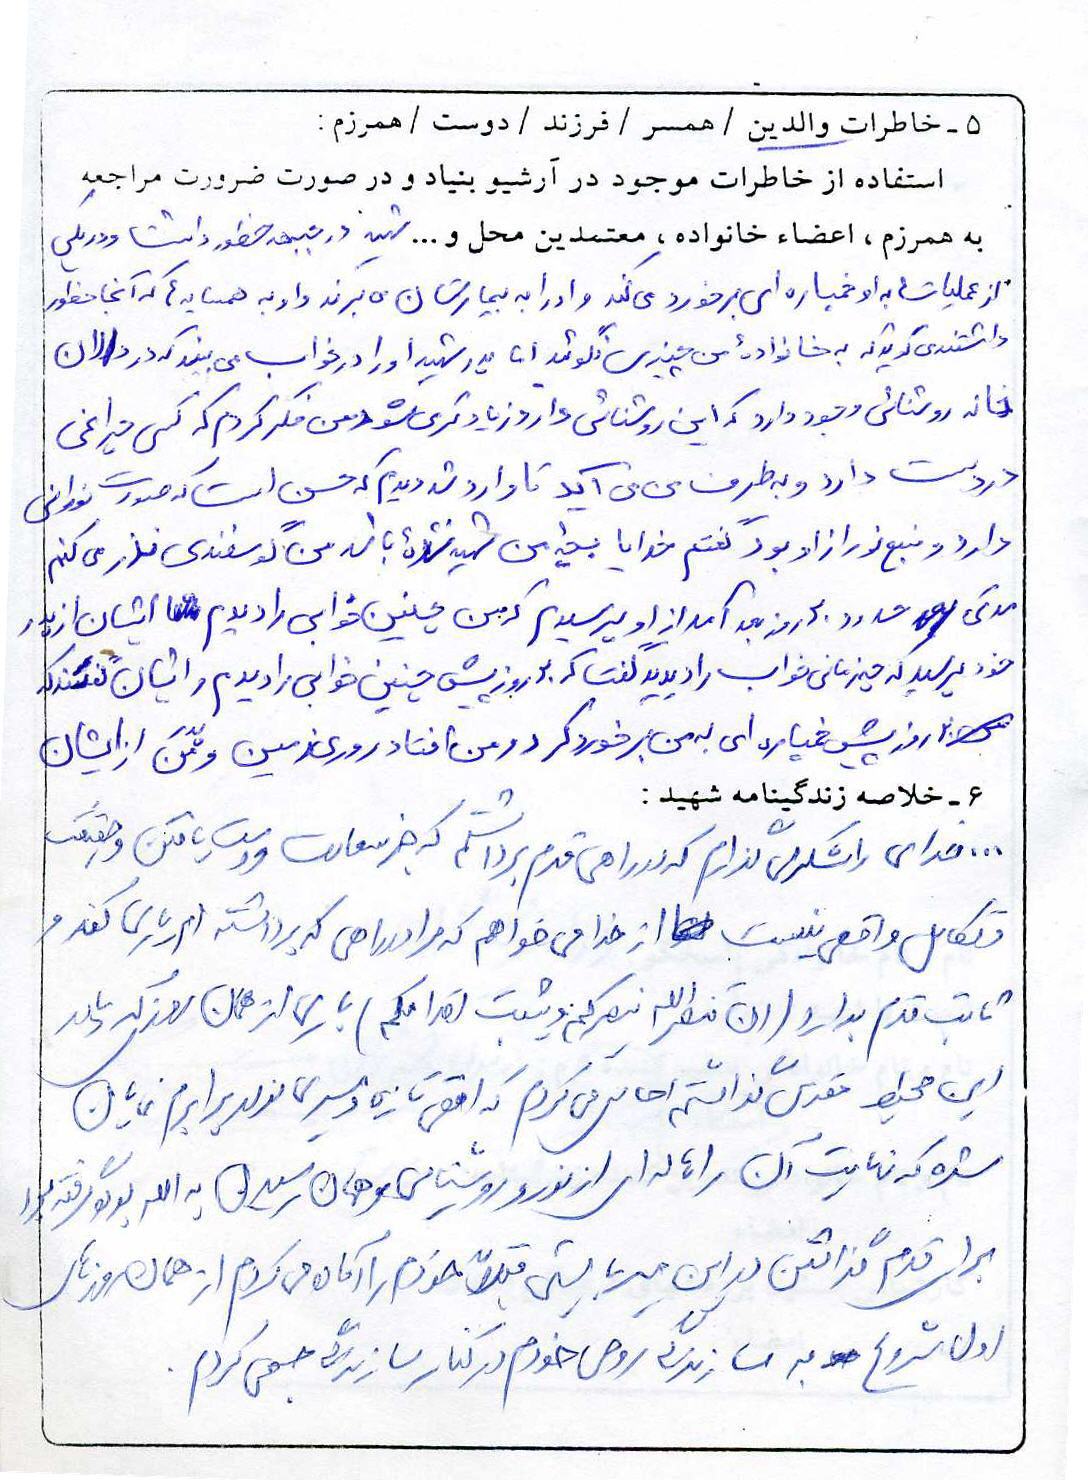 ۵ ـ خاطرات والدین / همسر / فرزند / دوست / همرزم :
استفاده از خاطرات موجود در آرشیو بنیاد و در صورت ضرورت مراجعه
به همرزم ، اعضاء خانواده ، معتمدین محل و ... شهید در جبهه حظور داشت و در یکی
از عملیات ها به او خمپاره ای برخورد می کند و او را به بیمارستان می برند و او به همسایه ها که آنجا حظور
داشتند می گوید که به خانوادهٔ من چیزی نگوئید اما پدر شهید او را در خواب می بیند که در دالان
خانه روشنائی وجود دارد که این روشنائی دارد زیادتر می شود من فکر کردم که کسی چراغی
در دست دارد و به طرف من می آید تا وارد شد دیدم که حسن است که صورت نورانی
دارد و منبع نور از او بود گفتم خدایا بچه من شهید نشده باشد من گوسفندی نذر می کنم
مدتی حدود ۲۰ روز بعد آمد از او پرسیدم که من چنین خوابی را دیدم ایشان از پدر
خود پرسید که چه زمانی خواب را دیدید گفت که ۲۰ روز پیش چنین خوابی را دیدم و ایشان گفتند که
۲۰ روز پیش خمپاره ای به من برخورد کرد و من افتادم روی زمین و از ایشان
۶ ـ خلاصه زندگینامه شهید :
... خدای را شکر می گذارم که در راهی قدم برداشتم که جز سعادت و دست یافتن و حقیقت
تکامل واقعی نیست از خدا می خواهم که مرا در راهی که برداشته ام یاری کند و
ثابت قدم بدارد (ان تنصرالله ینصرکم و یثبت اقدامکم) باری از همان روز که به
این محیط مقدس گذاشتم احساس می کردم که افقی تازه و مسیری در برابرم نمایان
شده که نهایت آن را هاله ای از نور و روشنایی و همان رسیدن به الله بود گرفته بود
برای قدم گذاشتن در این مسیر بایستی قبلاً خودم را آماده می کردم از همان روزهای
اول شروع به سازندگی روحی خودم در کنار سازندگی جسمی کردم .